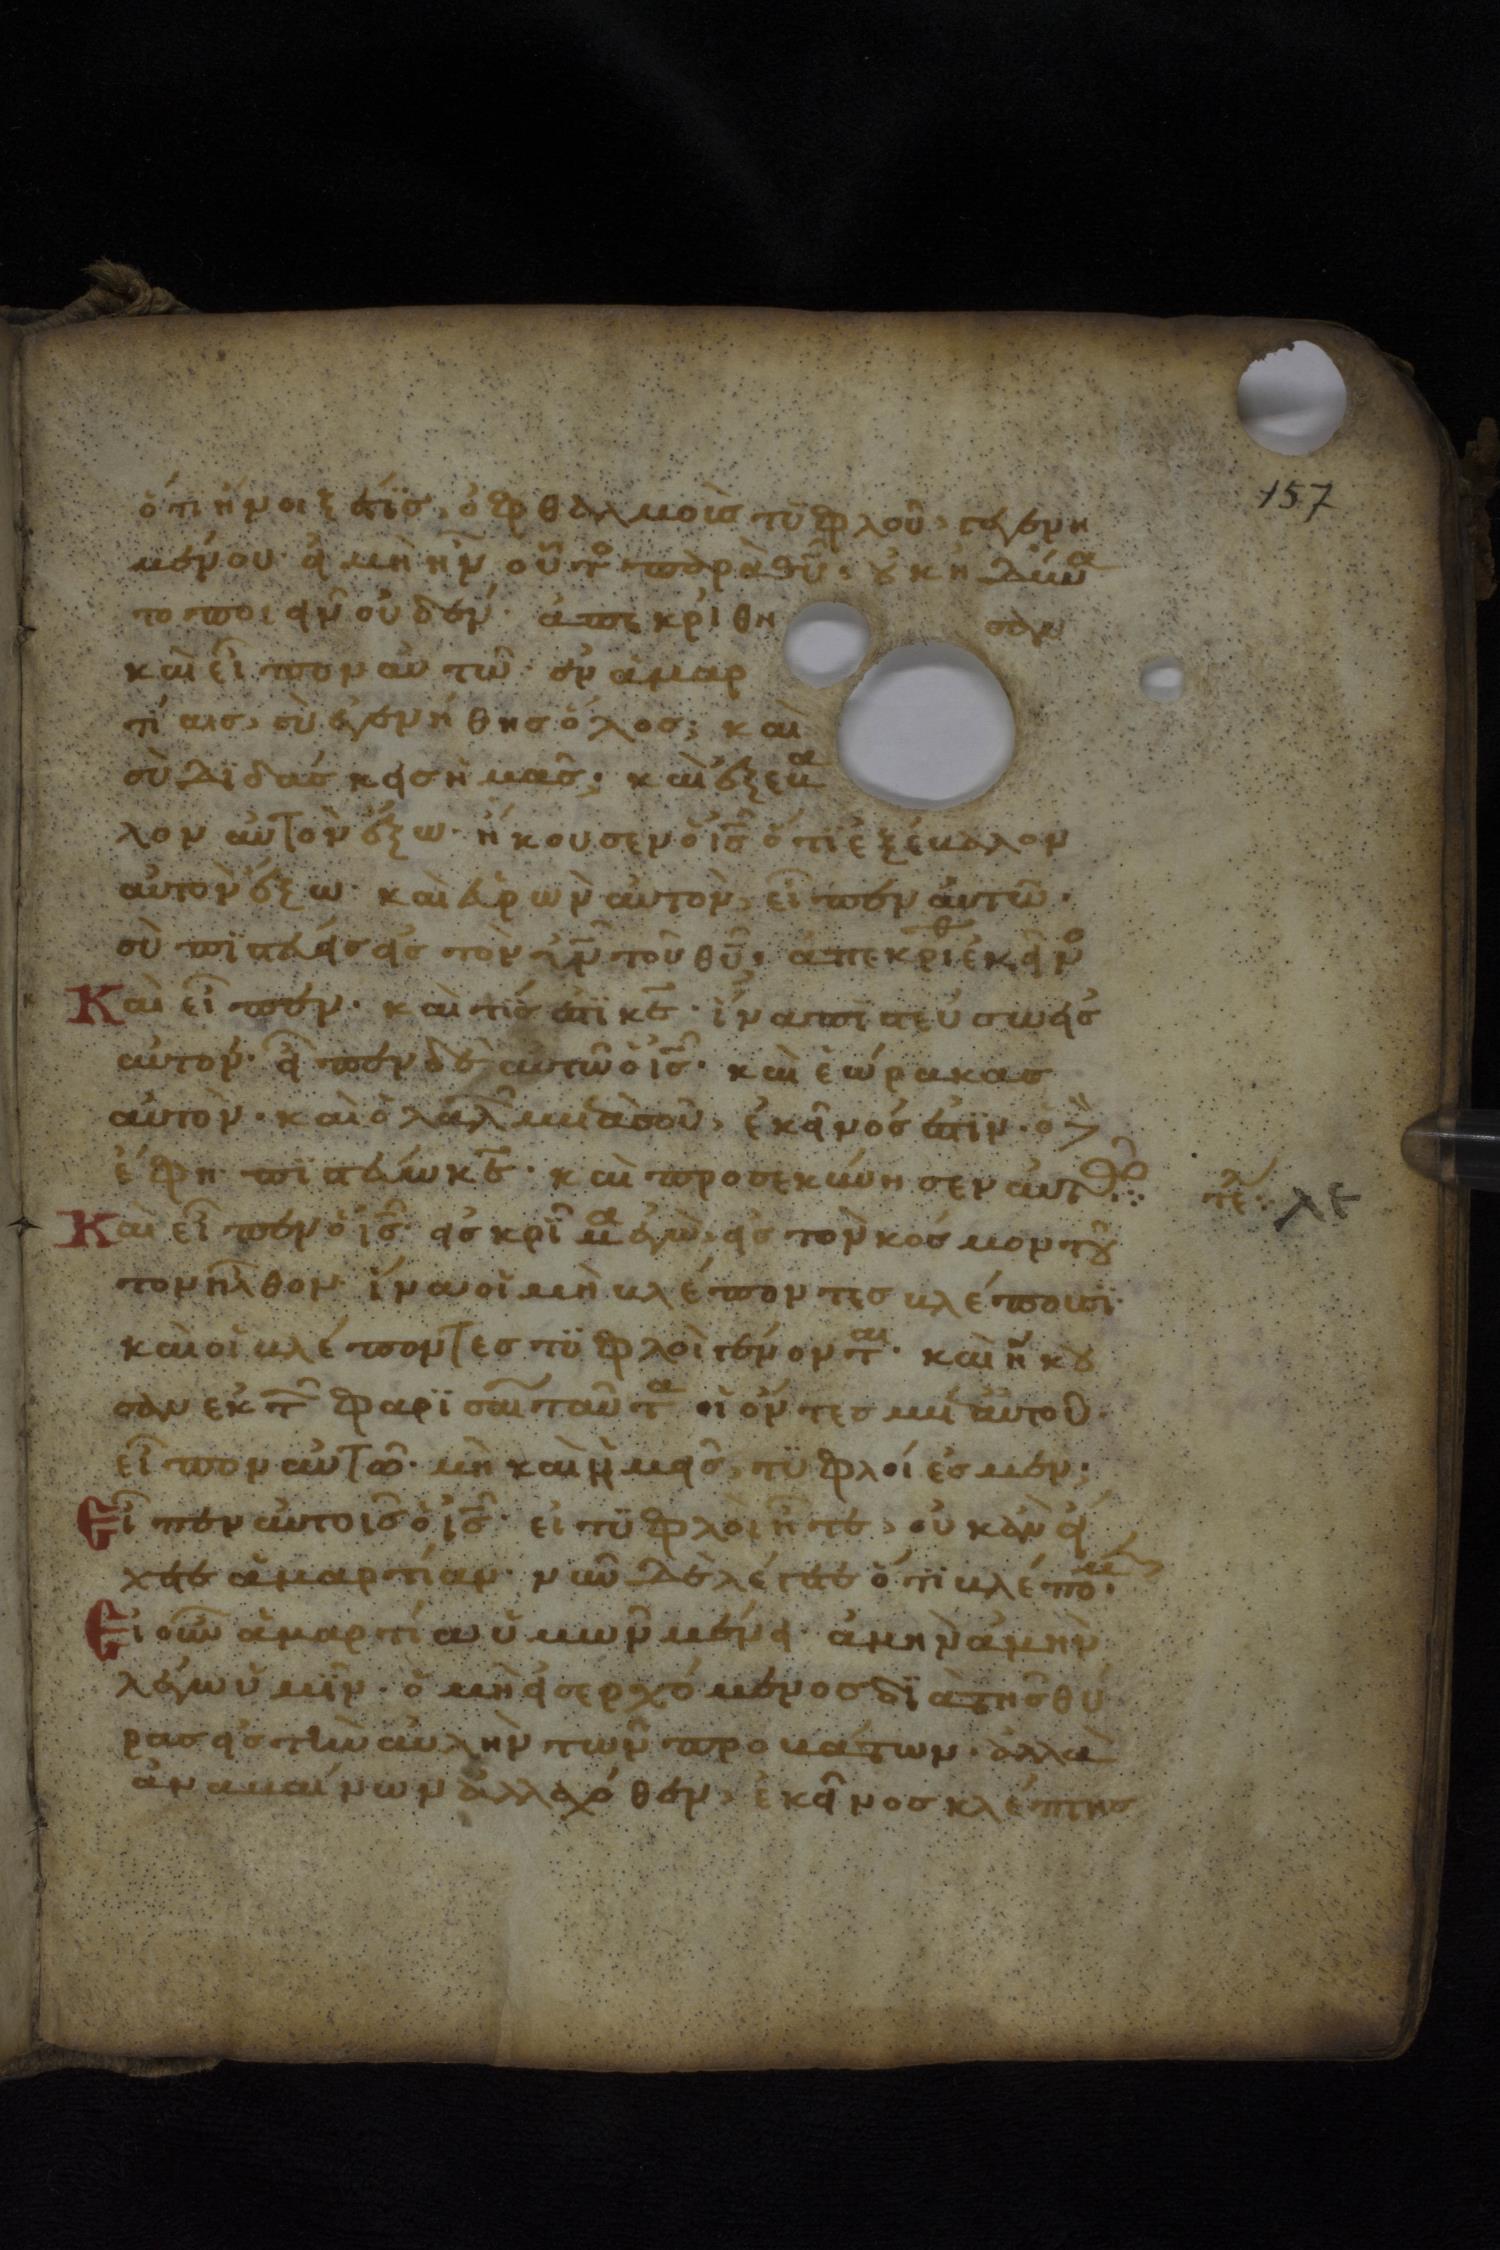 157
ὅτι ἤνοιξέ τίς, ὀφθαλμοὺς τυφλοῦ, γεγενη
μένου· εἰ μὴ ἦν οὗτο παρὰ θυ, οὐκ ἠδύνα
το ποιεῖν οὐδέν· ἀπεκρίθη σαν
καὶ εἶπον αὐτῶ· ἐν ἁμαρ
τίαις, σὺ ἐγεννήθης ὅλος; καὶ
σὺ διδάσκεις ἡμᾶς; καὶ ἐξέβα
λον αὐτὸν ἔξω· ἤκουσεν ὁ ις ὅτι ἐξέβαλον
αὐτὸν ἔξω· καὶ εὑρὼν αὐτὸν, εἶπεν αὐτῶ·
σὺ πιστεύεις εἰς τὸν υν τοῦ θυ; ἀπεκριθ ἐκεῖνο
Καὶ εἶπεν· καὶ τίς ἐστι κε· ἵνα πιστεύσω εἰς
αὐτόν· εἶπεν δὲ αὐτῶ ὁ ις· καὶ ἑώρακας
αὐτὸν· καὶ ὁ λαλῶν μετὰ σοῦ, ἐκεῖνός ἐστιν· ὁ δὲ
ἔφη πιστεύω κε· καὶ προσεκύνησεν αὐτῶ
τελ λε
Καὶ εἶπεν ὁ ις· εἰς κρῖμα ἐγὼ, εἰς τὸν κόσμον τοῦ
τον ἦλθον· ἵνα οἱ μὴ βλέποντες βλέπωσι·
καὶ οἱ βλέποντες τυφλοὶ γένονται· καὶ ἤκου
σαν ἐκ τῶν φαρισαίων ταῦτα οἱ ὄντες μετ αὐτοῦ·
εἶπον αὐτῶ· μὴ καὶ ἡμεῖς, τυφλοί ἐσμέν;
Εἶπεν αὐτοῖς ὁ ις· εἰ τυφλοὶ ἦτε, οὐκ ἂν εἴ
χετε ἁμαρτίαν· νῦν δὲ λέγετε ὅτι βλέπομεν·
Εἰ οὖν ἁμαρτία ὑμῶν μένει· ἀμὴν ἀμὴν
λέγω ὑμῖν· ὁ μὴ εἰσερχόμενος διὰ τῆς θύ
ρας εἰς τὴν αὐλὴν τῶν προβάτων· ἀλλὰ
ἀναβαίνων ἀλλαχόθεν, ἐκεῖνος κλέπτης